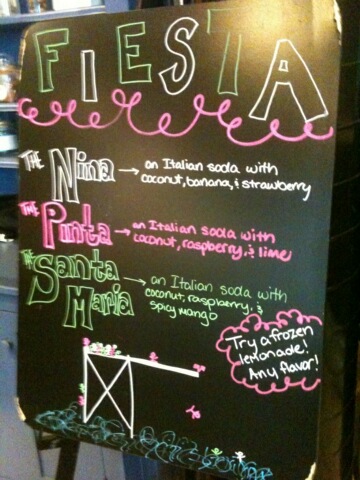 FIESTA
THE Nina → an Italian soda with
coconut, banana, & strawberry
THE Pinta → an Italian soda with
coconut, raspberry, & lime
THE Santa Maria → an Italian soda with
coconut, raspberry, &
spicy mango
Try a frozen
lemonade!
Any flavor!